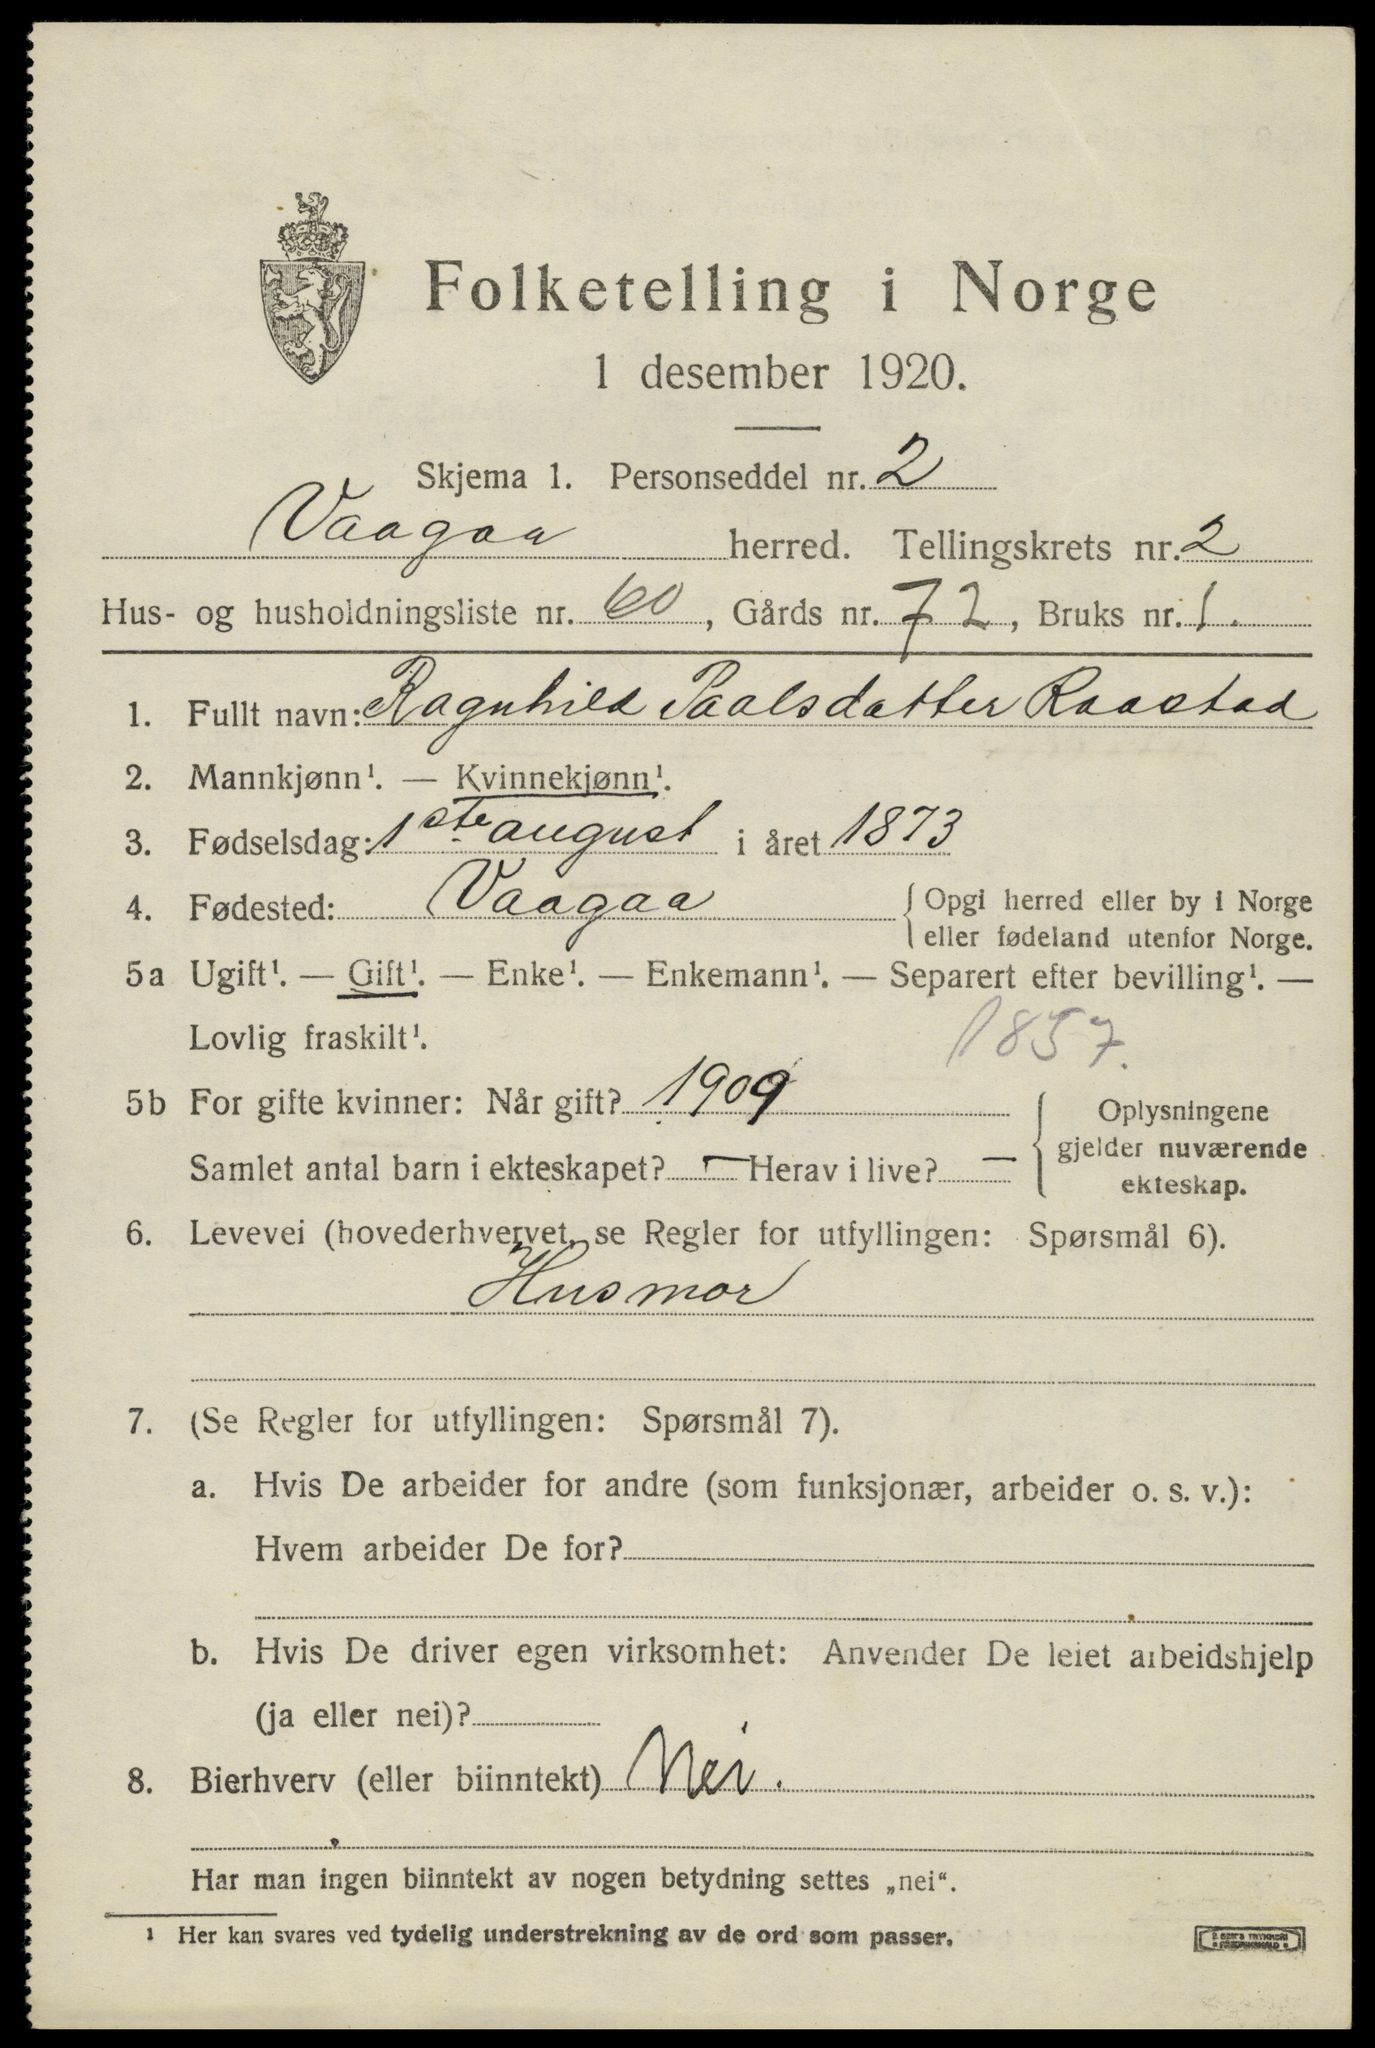 Folketelling i Norge
1 desember 1920.
Skjema 1. Personseddel nr. 2
Vaagaa herred. Tellingskrets nr. 2
Hus- og husholdningsliste nr. 60, Gårds nr. 72, Bruks nr. 1.
1. Fullt navn: Ragnhild Paalsdatter Raastad
2. Mannkjønn¹. — Kvinnekjønn¹.
3. Fødselsdag: 1ste august i året 1873
4. Fødested: Vaagaa { Opgi herred eller by i Norge
eller fødeland utenfor Norge.
5a Ugift¹. — Gift¹. — Enke¹. — Enkemann¹. — Separert efter bevilling¹. —
Lovlig fraskilt¹. 1857.
5b For gifte kvinner: Når gift? 1909 { Oplysningene
Samlet antal barn i ekteskapet? — Herav i live? — gjelder nuværende
ekteskap.
6. Levevei (hovederhvervet, se Regler for utfyllingen: Spørsmål 6).
Husmor
7. (Se Regler for utfyllingen: Spørsmål 7).
a. Hvis De arbeider for andre (som funksjonær, arbeider o. s. v.):
Hvem arbeider De for?
b. Hvis De driver egen virksomhet: Anvender De leiet arbeidshjelp
(ja eller nei)?
8. Bierhverv (eller biinntekt) Nei.
Har man ingen biinntekt av nogen betydning settes „nei“.
¹ Her kan svares ved tydelig understrekning av de ord som passer.